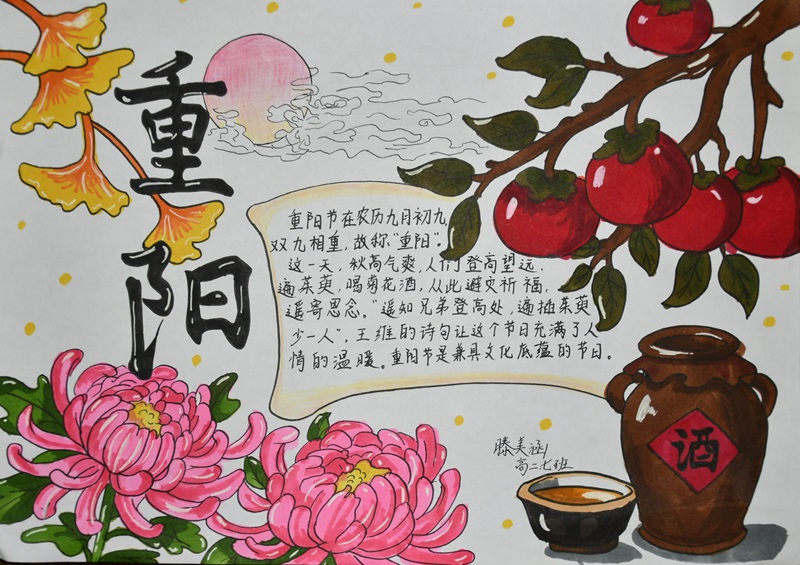 重阳
重阳节在农历九月初九,
双九相重,故称"重阳"。
这一天,秋高气爽,人们登高望远.
遍茱萸,喝菊花酒,从此避灾祈福,
遥寄思念。"遥知兄弟登高处,遍插茱萸
少一人",王维的诗句让这个节日充满了人
情的温暖。重阳节是兼具文化底蕴的节日。
滕美涵
高二七班
酒